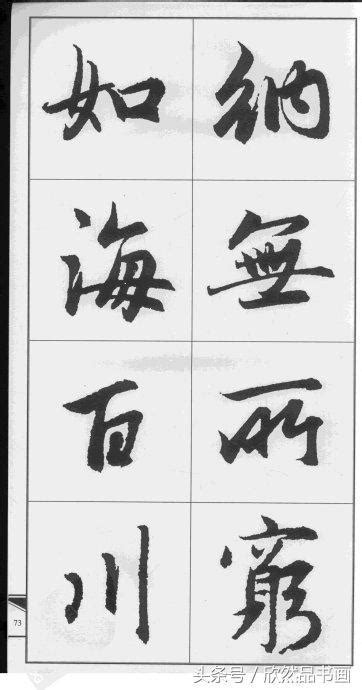 納無所窮
如海百川
73
头条号/欣然品书画